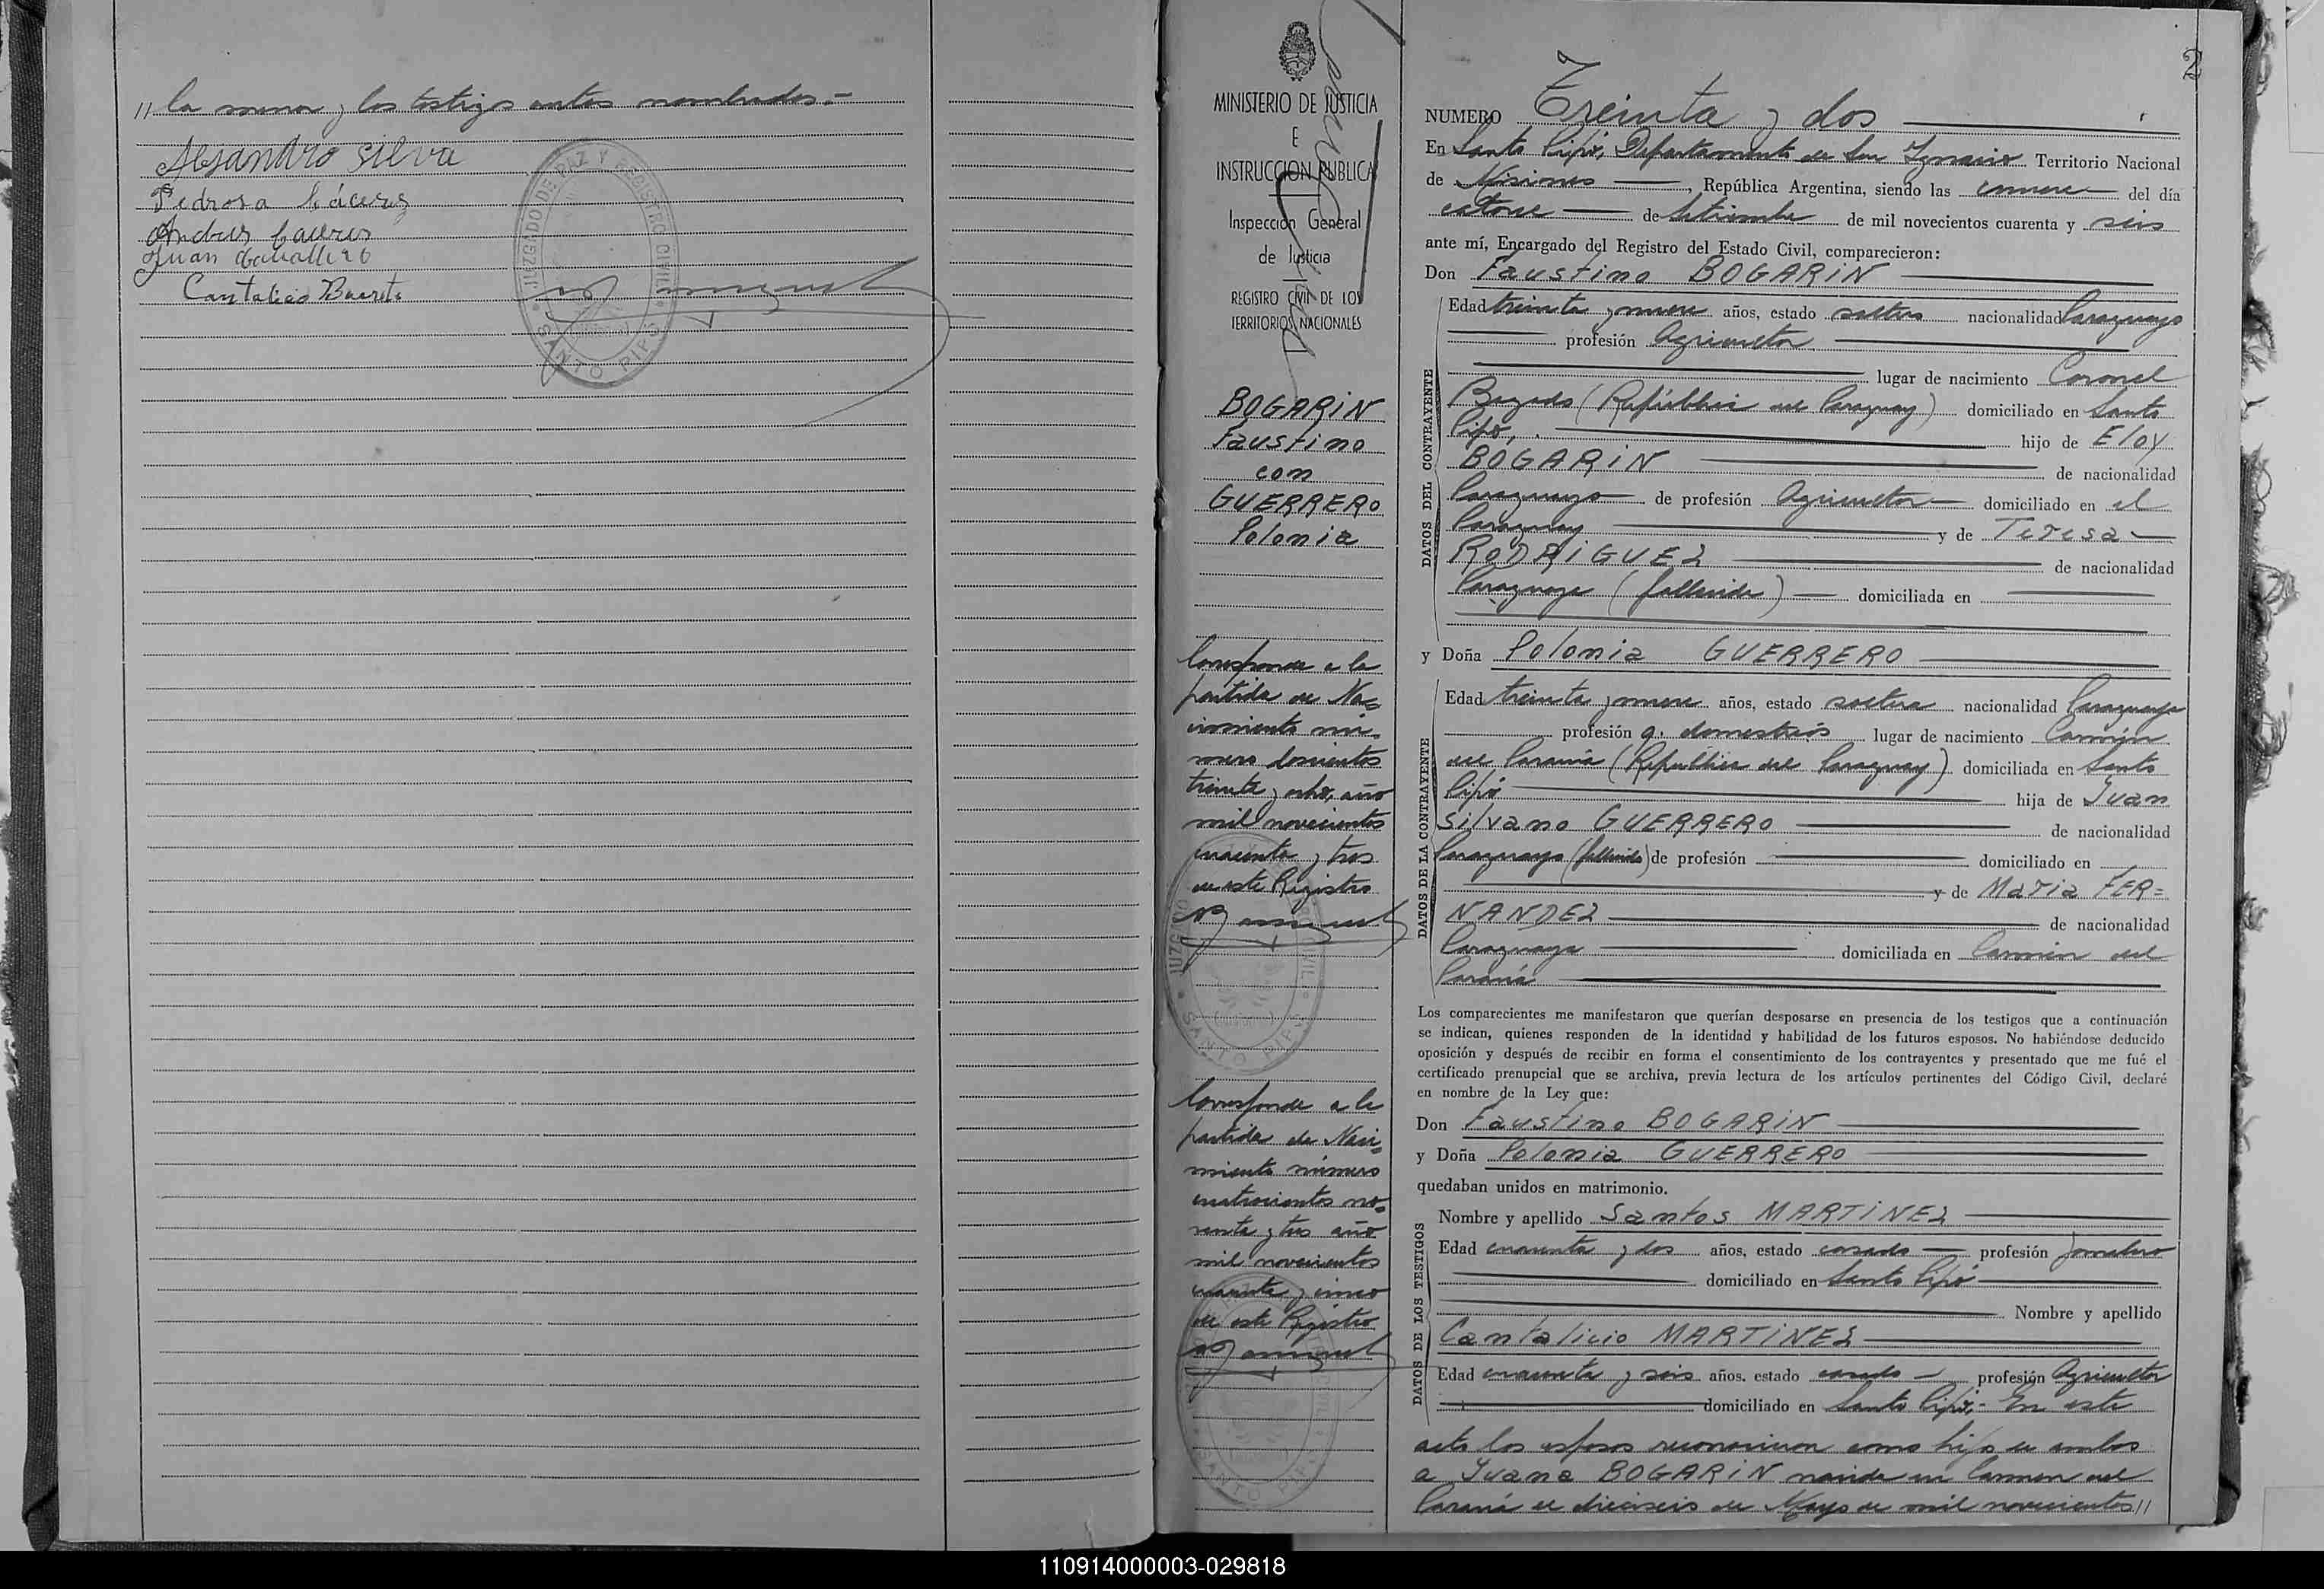 // la misma y los testigos antes nombrados.=
Alejandro Silva
Pedrosa Cáceres
Andres Caceres
Juan Caballero
Cantalicio Barreto
JUZGADO DE PAZ Y REGISTRO CIVIL
SANTO PIPÓ
MINISTERIO DE JUSTICIA
E
INSTRUCCION PUBLICA
Inspección General
de Justicia
REGISTRO CIVIL DE LOS
TERRITORIOS NACIONALES
BOGARIN
Faustino
con
GUERRERO
Polonia
Corresponde a la
partida de Na=
cimiento nú=
mero doscientos
treinta y ocho, año
mil novecientos
cuarenta y tres
de este Registro
Corresponde a la
partida de Naci=
miento número
cuatrocientos no=
venta y tres año
mil novecientos
cuarenta y cinco
de este Registro
2
NUMERO Treinta y dos
En Santo Pipó, Departamento de San Ignacio Territorio Nacional
de Misiones, República Argentina, siendo las once del día
catorce de Setiembre de mil novecientos cuarenta y seis
ante mí, Encargado del Registro del Estado Civil, comparecieron:
Don Faustino BOGARIN
DATOS DEL CONTRAYENTE
Edad treinta y nueve años, estado soltero nacionalidad Paraguayo
profesión Agricultor
lugar de nacimiento Coronel
Bogado (República del Paraguay) domiciliado en Santo
Pipó, hijo de Eloy
BOGARIN de nacionalidad
Paraguayo de profesión Agricultor domiciliado en el
Paraguay y de Teresa
RODRIGUEZ de nacionalidad
Paraguaya (fallecida) domiciliada en
y Doña Polonia GUERRERO
DATOS DE LA CONTRAYENTE
Edad treinta y nueve años, estado soltera nacionalidad Paraguaya
profesión q. domesticos lugar de nacimiento Carmen
del Paraná (República del Paraguay) domiciliada en Santo
Pipó hija de Juan
Silvano GUERRERO de nacionalidad
Paraguayo (fallecido) de profesión domiciliado en
y de Maria FER=
NANDEZ de nacionalidad
Paraguaya domiciliada en Carmen del
Paraná
Los comparecientes me manifestaron que querían desposarse en presencia de los testigos que a continuación
se indican, quienes responden de la identidad y habilidad de los futuros esposos. No habiéndose deducido
oposición y después de recibir en forma el consentimiento de los contrayentes y presentado que me fué el
certificado prenupcial que se archiva, previa lectura de los artículos pertinentes del Código Civil, declaré
en nombre de la Ley que:
Don Faustino BOGARIN
y Doña Polonia GUERRERO
quedaban unidos en matrimonio.
DATOS DE LOS TESTIGOS
Nombre y apellido Santos MARTINEZ
Edad cuarenta y dos años, estado casado profesión Jornalero
domiciliado en Santo Pipó
Nombre y apellido
Cantalicio MARTINEZ
Edad cuarenta y seis años. estado casado profesión Agricultor
domiciliado en Santo Pipó.- En este
acto los esposos reconocieron como hijo de ambos
a Juana BOGARIN nacida en Carmen del
Paraná el dieciseis de Mayo de mil novecientos //
110914000003-029818